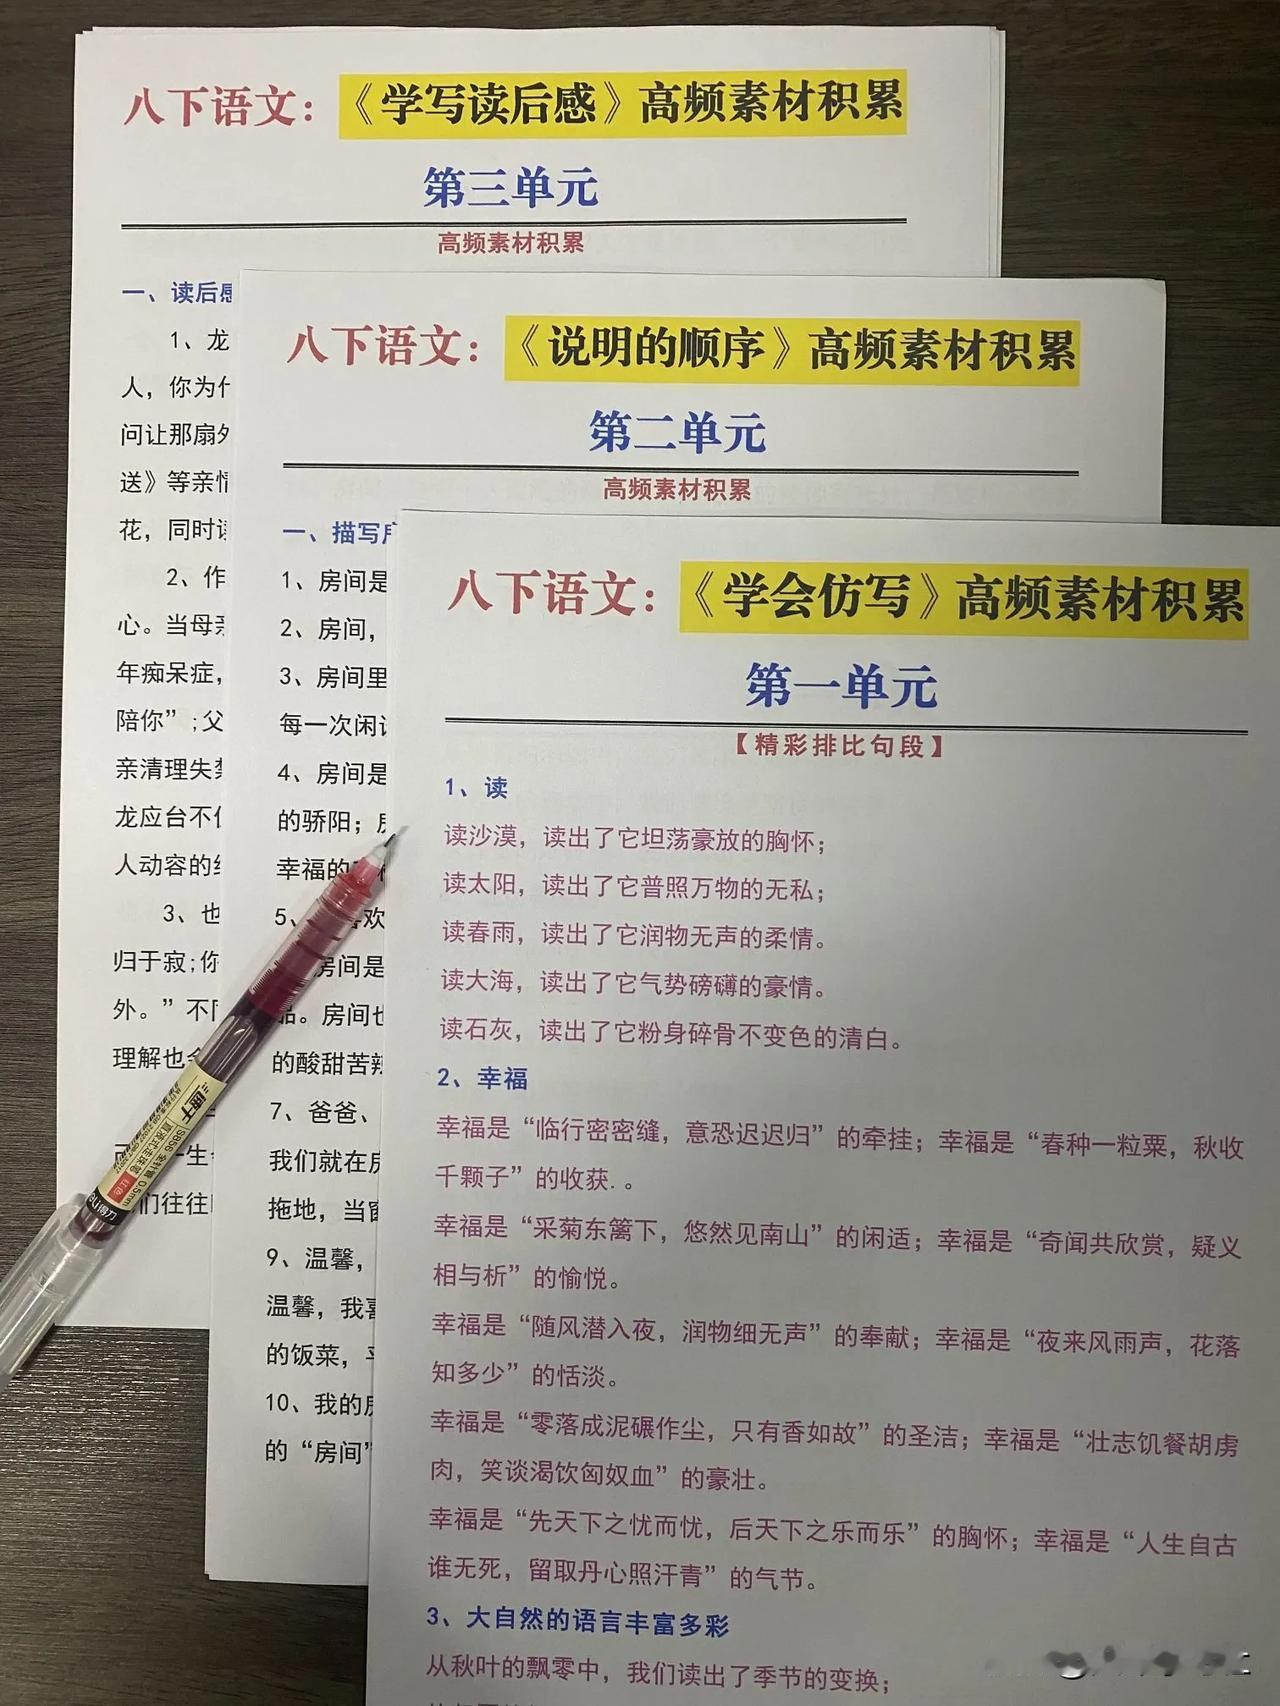 八下语文：《学写读后感》高频素材积累
第三单元
高频素材积累
一、读后感
1、龙
人，你为什
问让那扇
送》等亲情
花，同时
2、作
心。当母亲
年痴呆症，
陪你”;父
亲清理失禁
龙应台不
人动容的
3、也
归于寂;你
外。”不
理解也
一生
们往往
八下语文：《说明的顺序》高频素材积累
第二单元
高频素材积累
一、描写
1、房间是
2、房间，
3、房间里
每一次闲
4、房间是
的骄阳；
幸福的
5、喜欢
房间是
品。房间也
的酸甜苦辣
7、爸爸、
我们就在房
拖地，当窗
9、温馨，
温馨，我喜
的饭菜，
10、我的房
的“房间”
八下语文：《学会仿写》高频素材积累
第一单元
【精彩排比句段】
1、读
读沙漠，读出了它坦荡豪放的胸怀；
读太阳，读出了它普照万物的无私；
读春雨，读出了它润物无声的柔情。
读大海，读出了它气势磅礴的豪情。
读石灰，读出了它粉身碎骨不变色的清白。
2、幸福
幸福是“临行密密缝，意恐迟迟归”的牵挂；幸福是“春种一粒粟，秋收
千颗子”的收获.。
幸福是“采菊东篱下，悠然见南山”的闲适；幸福是“奇闻共欣赏，疑义
相与析”的愉悦。
幸福是“随风潜入夜，润物细无声”的奉献；幸福是“夜来风雨声，花落
知多少”的恬淡。
幸福是“零落成泥碾作尘，只有香如故”的圣洁；幸福是“壮志饥餐胡虏
肉，笑谈渴饮匈奴血”的豪壮。
幸福是“先天下之忧而忧，后天下之乐而乐”的胸怀；幸福是“人生自古
谁无死，留取丹心照汗青”的气节。
3、大自然的语言丰富多彩
从秋叶的飘零中，我们读出了季节的变换；
速干
S856 全针管 0.5mm
直液式走珠笔 红色
得力